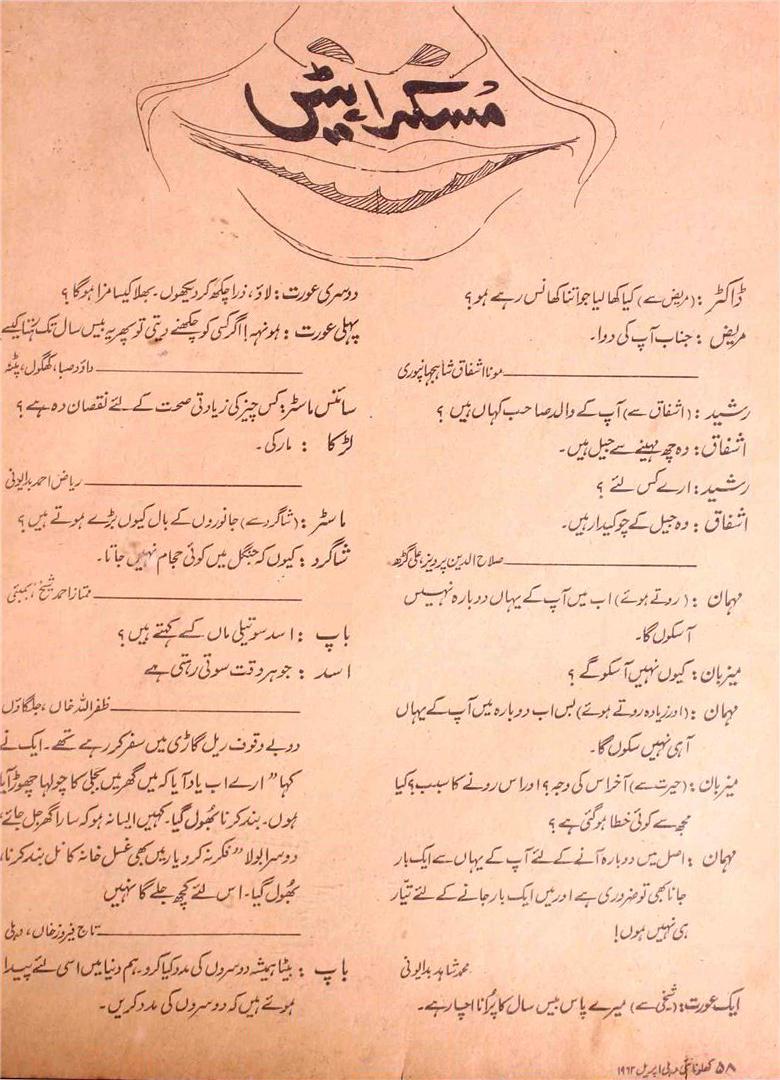 مسکراہٹیں
ڈاکٹر : (مریض سے) کیا کھا لیا جو اتنا کھانس رہے ہو؟
مریض : جناب آپ کی دوا۔
مونا اشفاق شاہجہانپوری
رشید : (اشفاق سے) آپ کے والد صاحب کہاں ہیں ؟
اشفاق : وہ چھ مہینے سے جیل ہیں۔
رشید : ارے کس لئے ؟
اشفاق : وہ جیل کے چوکیدار ہیں۔
صلاح الدین پرویز، علی گڑھ
مہمان : (روتے ہوئے) اب میں آپ کے یہاں دوبارہ نہیں
آسکوں گا۔
میزبان : کیوں نہیں آسکو گے ؟
مہمان : (اور زیادہ روتے ہوئے) بس اب دوبارہ میں آپ کے یہاں
آہی نہیں سکوں گا۔
میزبان : (حیرت سے) آخر اس کی وجہ؟ اور اس رونے کا سبب؟ کیا
مجھ سے کوئی خطا ہوگئی ہے ؟
مہمان : اصل میں دوبارہ آنے کے لئے آپ کے یہاں سے ایک بار
جانا بھی تو ضروری ہے اور میں ایک بار جانے کے لئے تیّار
ہی نہیں ہوں!
محمد شاہد بدایونی
ایک عورت : (شیخی سے) میرے پاس بیس سال کا پُرانا اچار ہے۔
دوسری عورت : لاؤ، ذرا چکھ کر دیکھوں۔ بھلا کیسا مزا ہوگا ؟
پہلی عورت : ہونہہ! اگر کسی کو چکھنے دیتی تو پھر یہ بیس سال تک ٹکتا کیسے
داؤد صبا، کھگول، پٹنہ
سائنس ماسٹر : کس چیز کی زیادتی صحت کے لئے نقصان دہ ہے ؟
لڑکا : مار کی۔
ریاض احمد بدایونی
ماسٹر : (شاگرد سے) جانوروں کے بال کیوں بڑے ہوتے ہیں ؟
شاگرد : کیوں کہ جنگل میں کوئی حجام نہیں جاتا۔
ممتاز احمد شیخ، بمبئی
باپ : اسد سوتیلی ماں کسے کہتے ہیں ؟
اسد : جو ہر وقت سوتی رہتی ہے
ظفر اللہ خاں، جلگاؤں
دو بے وقوف ریل گاڑی میں سفر کر رہے تھے۔ ایک نے
کہا "ارے اب یاد آیا کہ میں گھر میں بجلی کا چولہا چھوڑ آیا
ہوں۔ بند کرنا بھُول گیا۔ کہیں ایسا نہ ہو کہ سارا گھر جل جائے،
دوسرا بولا "فکر نہ کرو یار میں بھی غسل خانہ کا نل بند کرنا،
بھُول گیا۔ اس لئے کچھ جلے گا نہیں
تاج فیروز خاں، دہلی
باپ : بیٹا ہمیشہ دوسروں کی مدد کیا کرو۔ ہم دنیا میں اسی لئے پیدا
ہوئے ہیں کہ دوسروں کی مدد کریں۔
۵۸ کھلونا نئی دہلی اپریل ۱۹۶۲